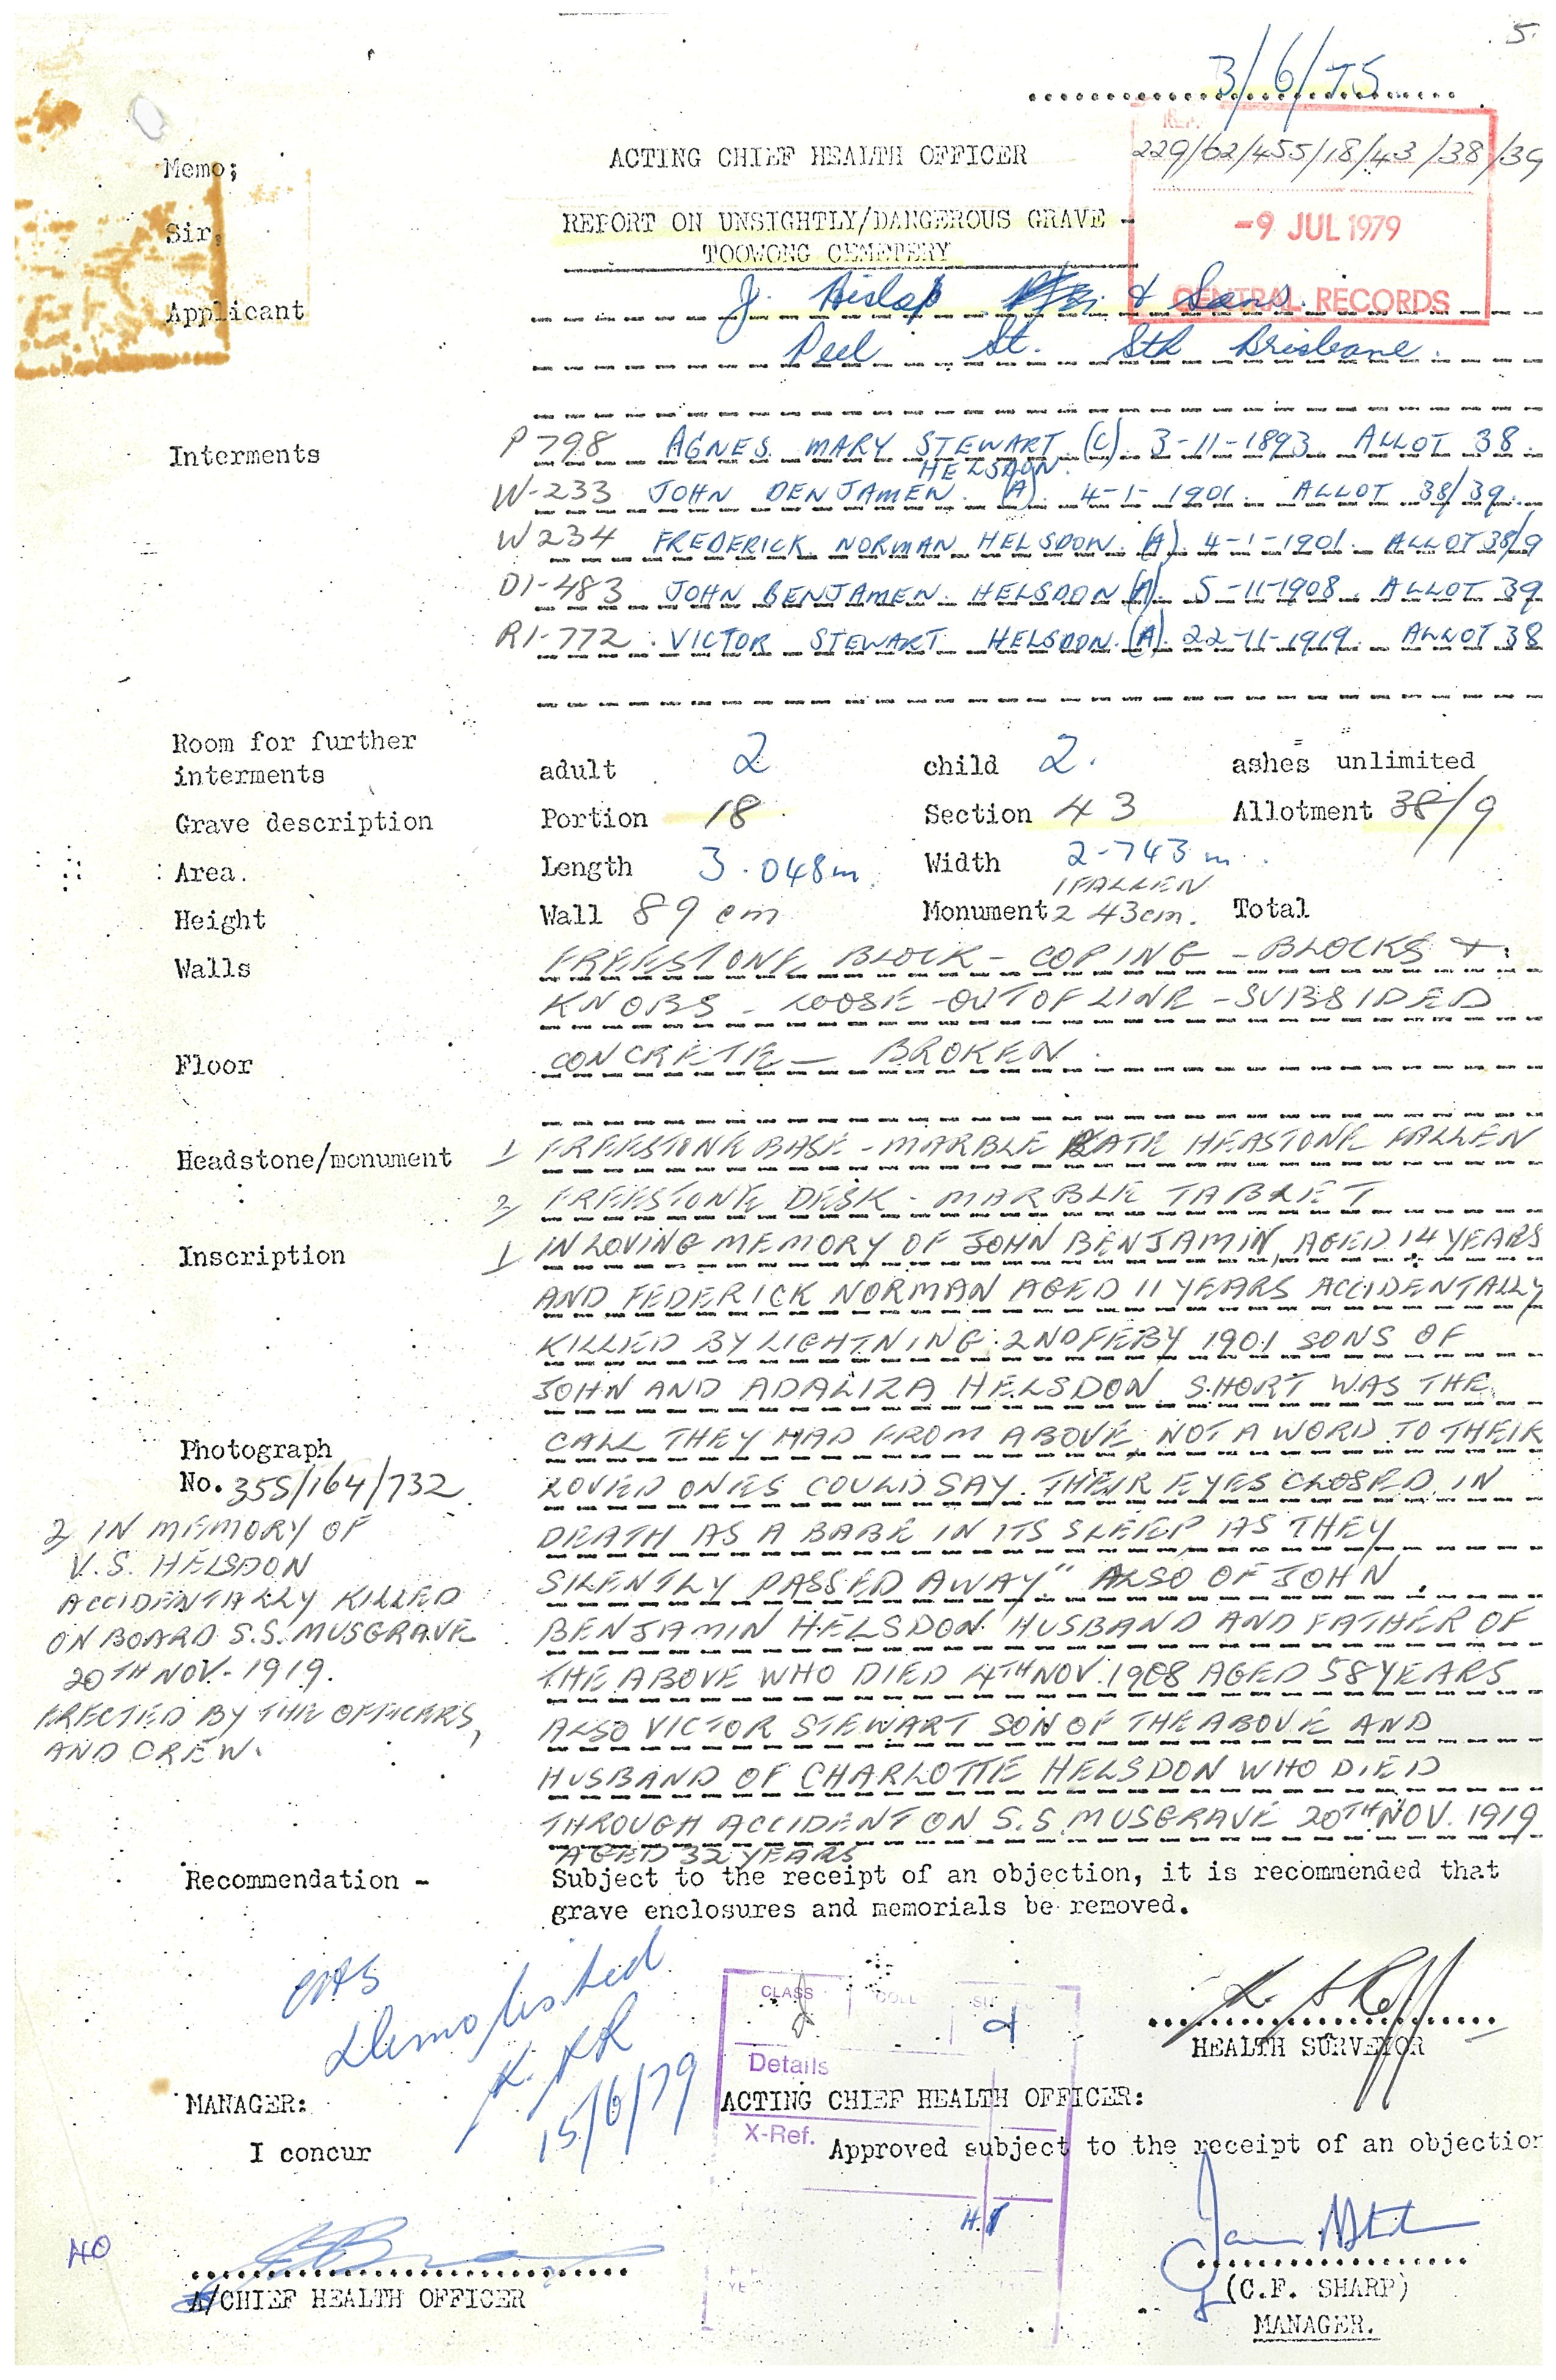 5.
3/6/75
Memo;
ACTING CHIEF HEALTH OFFICER
229/62/455/18/43/38/39
Sir,
REPORT ON UNSIGHTLY/DANGEROUS GRAVE -
TOOWONG CEMETERY
-9 JUL 1979
CENTRAL RECORDS
Applicant J. Hislop & Sons.
Peel St. Sth Brisbane.
Interments P798 AGNES MARY STEWART (C) 3-11-1893 ALLOT 38.
HELSDON.
W-233 JOHN BENJAMEN. (A). 4-1-1901. ALLOT 38/39.
W234 FREDERICK NORMAN HELSDON. (A) 4-1-1901. ALLOT 38/9
D1-483 JOHN BENJAMEN. HELSDON (A). 5-11-1908. ALLOT 39
R1-772. VICTOR STEWART HELSDON. (A). 22-11-1919. ALLOT 38
Room for further
interments adult 2 child 2. ashes unlimited
Grave description Portion 18 Section 43 Allotment 38/9
Area. Length 3.048m Width 2-743m.
1 FALLEN
Height Wall 89 cm Monument 2 43cm. Total
Walls FREESTONE BLOCK - COPING - BLOCKS +
KNOBS - LOOSE - OUT OF LINE - SUBSIDED
Floor CONCRETE - BROKEN.
Headstone/monument 1 FREESTONE BASE - MARBLE HEASTONE FALLEN
2 FREESTONE DESK - MARBLE TABLET
Inscription 1 IN LOVING MEMORY OF JOHN BENJAMIN, AGED 14 YEARS
AND FEDERICK NORMAN AGED 11 YEARS ACCIDENTALLY
KILLED BY LIGHTNING 2ND FEBY 1901 SONS OF
JOHN AND ADALIZA HELSDON SHORT WAS THE
CALL THEY HAD FROM ABOVE NOT A WORD TO THEIR
LOVED ONES COULD SAY. THEIR EYES CLOSED IN
DEATH AS A BABE IN ITS SLEEP AS THEY
SILENTLY PASSED AWAY" ALSO OF JOHN
BENJAMIN HELSDON HUSBAND AND FATHER OF
THE ABOVE WHO DIED 4TH NOV. 1908 AGED 58 YEARS
ALSO VICTOR STEWART SON OF THE ABOVE AND
HUSBAND OF CHARLOTTE HELSDON WHO DIED
THROUGH ACCIDENT ON S.S. MUSGRAVE 20TH NOV. 1919
AGED 32 YEARS
Photograph
No. 355/164/732
2 IN MEMORY OF
V.S. HELSDON
ACCIDENTALLY KILLED
ON BOARD S.S. MUSGRAVE
20TH NOV. 1919.
ERECTED BY THE OFFICERS,
AND CREW.
Recommendation - Subject to the receipt of an objection, it is recommended that
grave enclosures and memorials be removed.
Demolished
15/6/79
CLASS
Details
X-Ref.
HEALTH SURVEYOR
MANAGER:
ACTING CHIEF HEALTH OFFICER:
I concur
Approved subject to the receipt of an objection
A/CHIEF HEALTH OFFICER
(C.F. SHARP)
MANAGER.